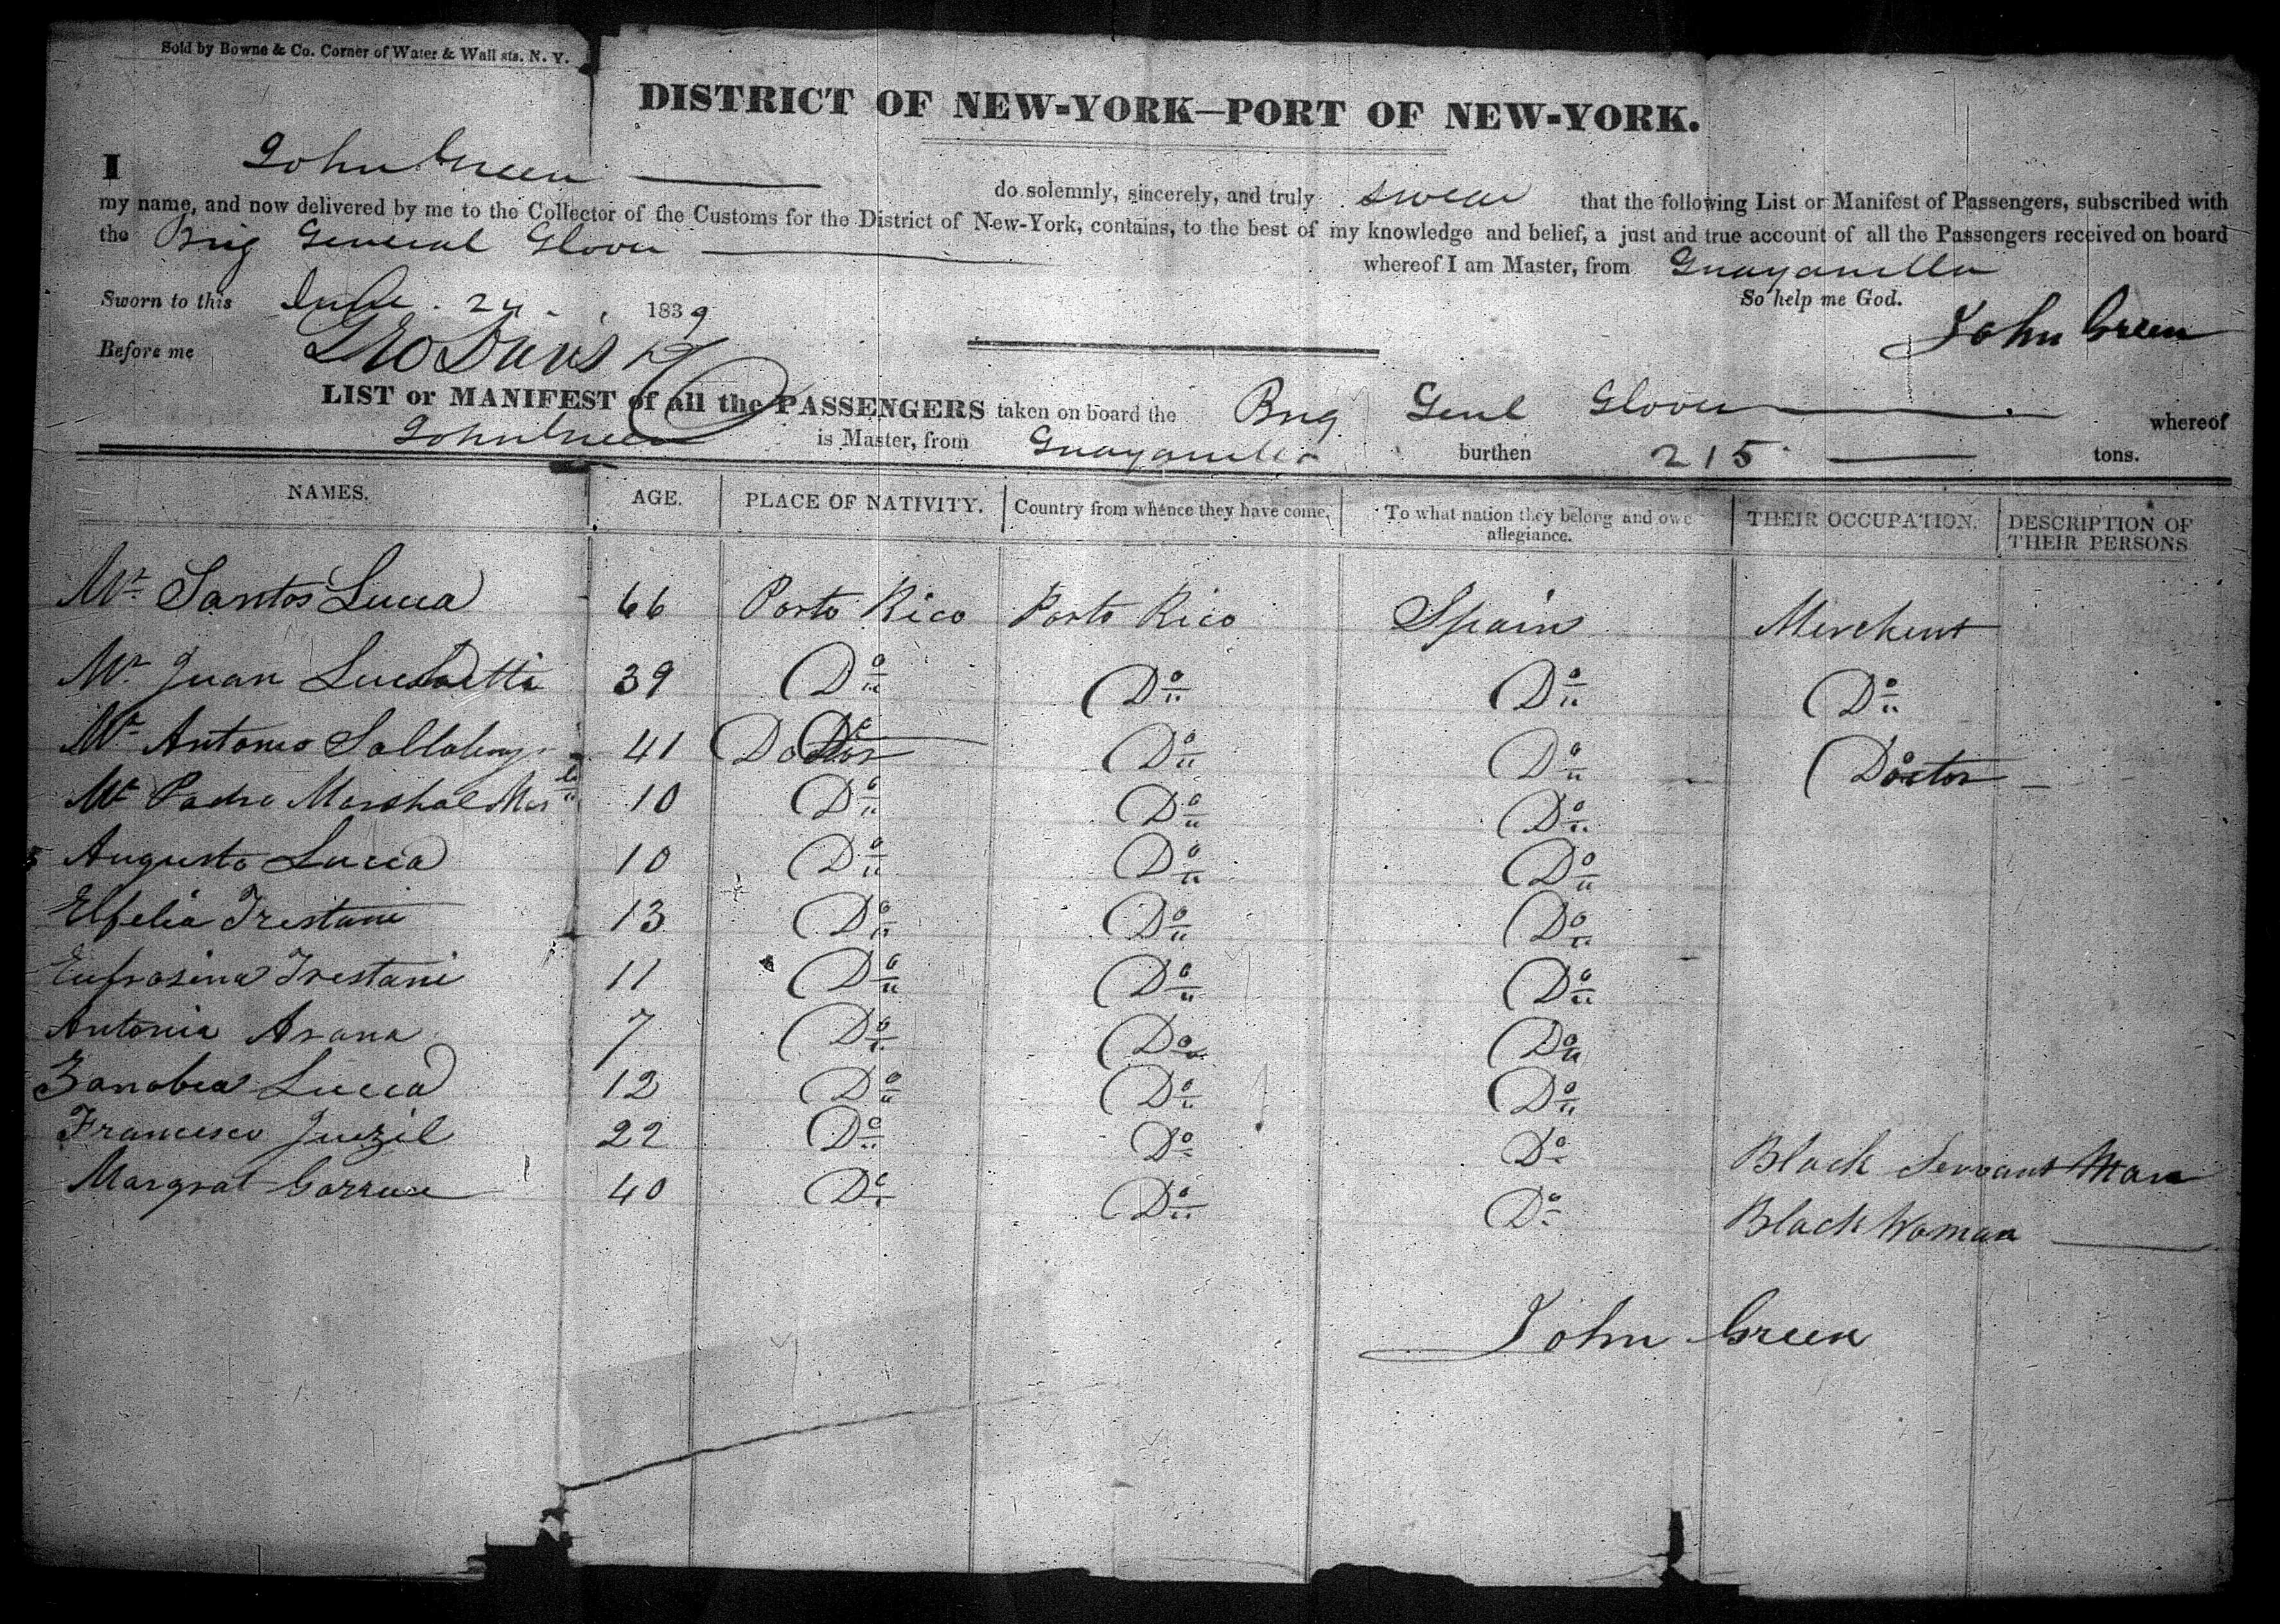 Sold by Bowne & Co. Corner of Water & Wall sts. N. Y.
DISTRICT OF NEW-YORK—PORT OF NEW-YORK.
I John Green do solemnly, sincerely, and truly swear that the following List or Manifest of Passengers, subscribed with
my name, and now delivered by me to the Collector of the Customs for the District of New-York, contains, to the best of my knowledge and belief, a just and true account of all the Passengers received on board
the Brig General Glover whereof I am Master, from Guayanilla
Sworn to this 24 1839 So help me God.
John Green
Before me Geo Davis
LIST or MANIFEST of all the PASSENGERS taken on board the Brig Genl Glover whereof
John Green is Master, from Guayanilla burthen 215 tons.
NAMES. AGE. PLACE OF NATIVITY. Country from whence they have come. To what nation they belong and owe allegiance. THEIR OCCUPATION. DESCRIPTION OF THEIR PERSONS
Mr Santos Lucca 66 Porto Rico Porto Rico Spain Merchent
Mr Juan Luchetti 39 Do Do Do Do
Mr Antonio 41 Do Do Do Doctor
Mr Padro Marshal 10 Do Do Do
5 Augusto Lucca 10 Do Do Do
Elfelia Tristani 13 Do Do Do
Eufrosina Trestani 11 Do Do Do
Antonia Arana 7 Do Do Do
Zanobea Lucca 12 Do Do Do
Francisco 22 Do Do Do Black Servant Man
Margrat 40 Do Do Do Black Woman
John Green